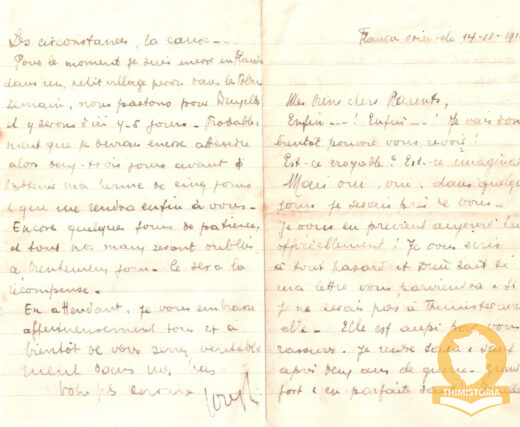 Flandre orientale 14-11-191
Mes biens chers Parents,
Enfin --! Enfin --! Je vais donc
bientôt pouvoir vous revoir!
Est-ce croyable? Est-ce imaginable
Mais oui, oui, dans quelques
jours je serais près de vous.
Je vous en previent aujourd'hui
officiellement! Je vous écris
à tout hasard et Dieu sait si
ma lettre vous parviendra & si
je ne serais pas à Thimister avant
elle. Elle est aussi pour vous
rassurer. Je rentre sain & sauf
après deux ans de guerre. Grand
fort & en parfaite
Les circonstances, la cause---
Pour le moment je suis encore en Flandre
dans un petit village perdu dans les
Demain, nous partons pour Bruxelles
et y serons d'ici 4-5 jours. Probable-
ment que je devrais encore attendre
alors deux-trois jours avant
d'obtenir ma permе de cinq jours
& que me rendra enfin à vous.
Encore quelques jours de patience,
et tout nos maux seront oubliés
à jour. Ce sera la
récompense.
En attendant, je vous embrasse
affectueusement tous et à
bientôt de vous serrer véritable
ment dans nos bras
Votre fils